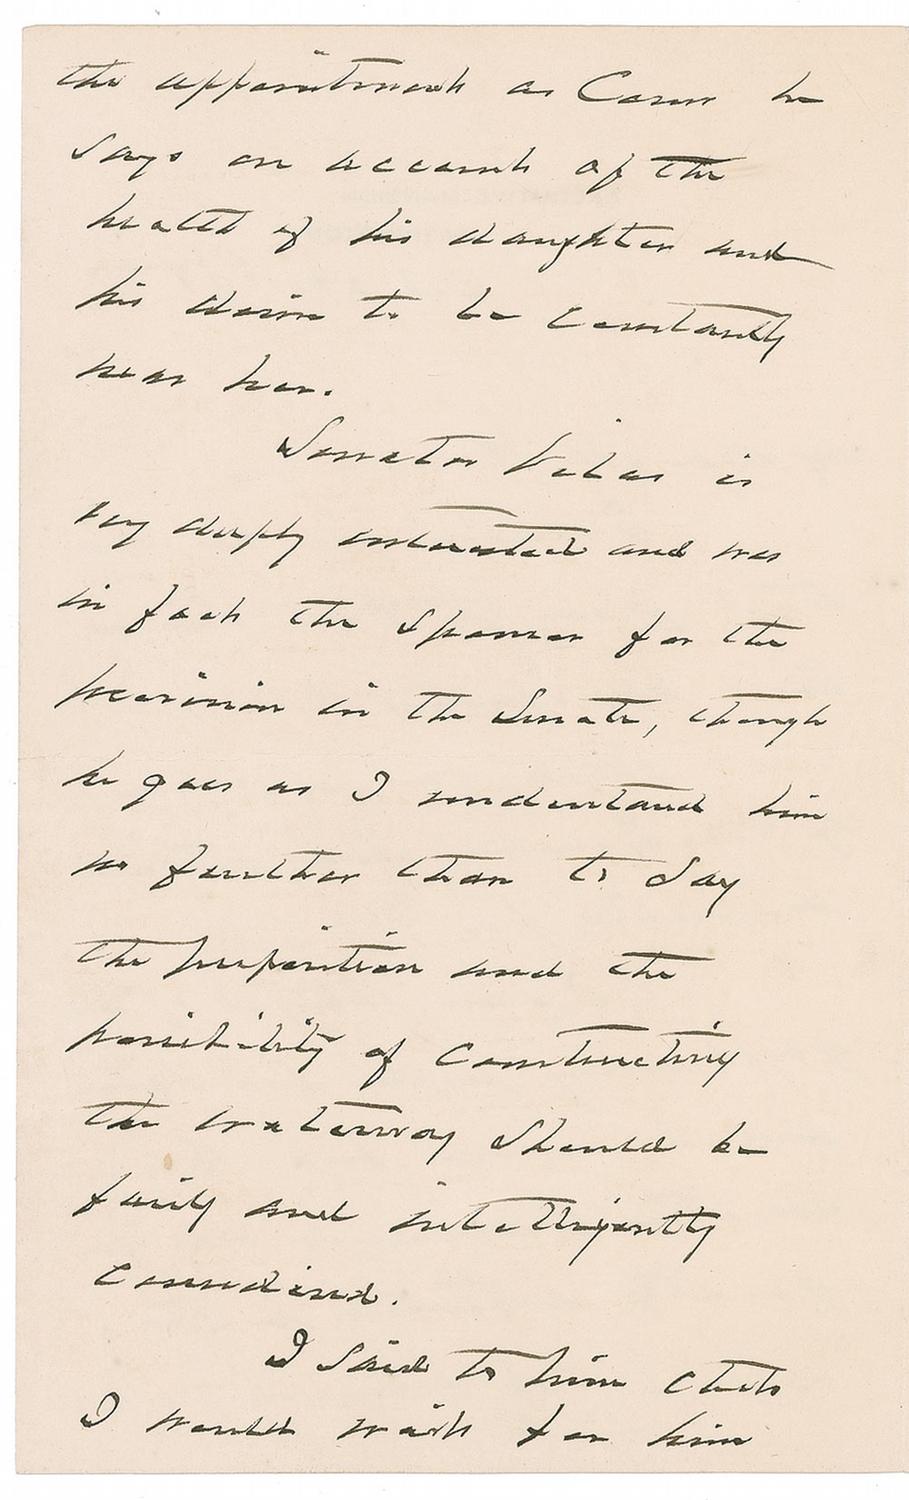 the appointment as Com he
says on account of the
health of his daughter and
his desire to be constantly
near her.
Senator Vilas is
very deeply interested and was
in fact the sponsor for the
provision in the Senate, though
he goes as I understand him
no further than to say
the proposition and the
possibility of constructing
the waterway should be
fairly and intelligently
considered.
I said to him that
I would wait for him